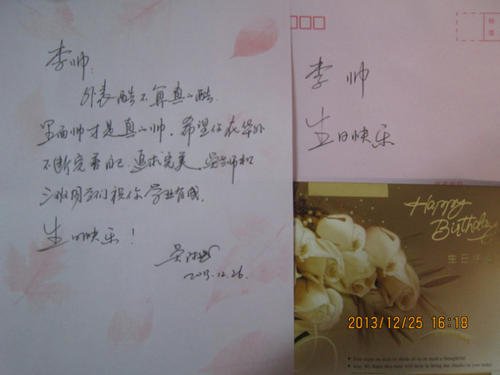 李帅：
外表酷不算真的酷.
里面帅才是真的帅. 希望你在华外
不断完善自己, 追求完美. 吴老师和
三水同学们祝你学业有成.
生日快乐！
2013.12.26.
李帅
生日快乐
Happy
Birthday
生日快乐
2013/12/25 16:18